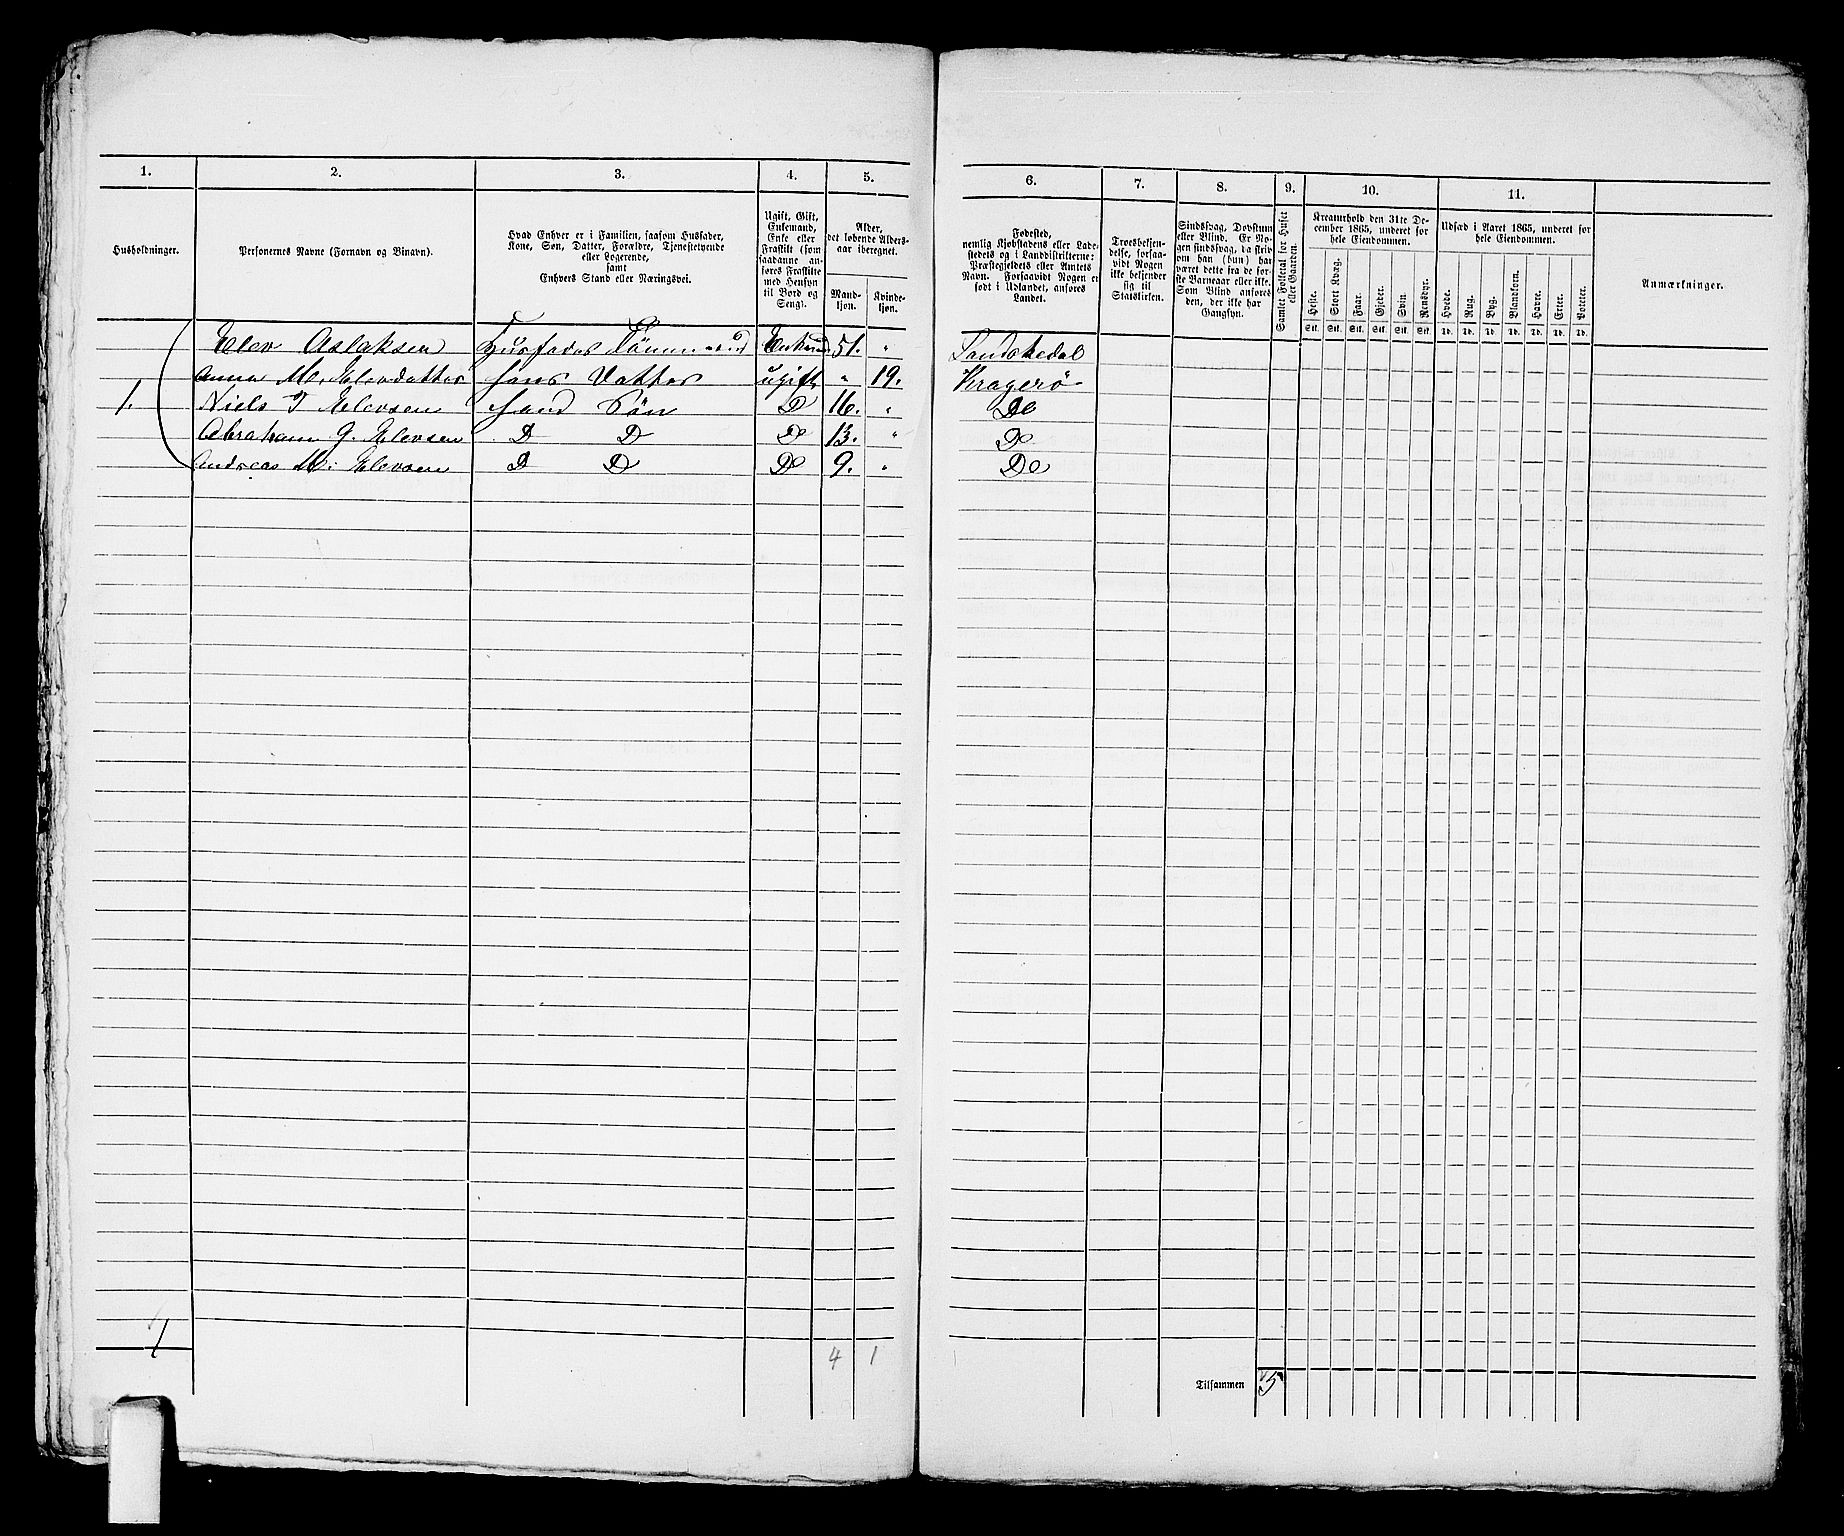 1. 2. 3. 4. 5. 6. 7. 8. 9. 10. 11.
Husholdninger.
Personernes Navne (Fornavn og Binavn).
Hvad Enhver er i Familien, saasom Husfader,
Kone, Søn, Datter, Forældre, Tjenestetyende
eller Logerende,
samt
Enhvers Stand eller Næringsvei.
Ugift, Gift,
Enkemand,
Enke eller
Fraskilt (som
saadanne an-
føres Fraskilte
med Hensyn
til Bord og
Seng).
Alder,
det løbende Alders-
aar iberegnet.
Mand-
kjøn.
Kvinde-
kjøn.
Fødested,
nemlig Kjøbstadens eller Lade-
stedets og i Landdistrikterne:
Præstegjeldets eller Amtets
Navn. Forsaavidt Nogen er
født i Udlandet, anføres
Landet.
Troesbekjen-
delse, forsaa-
vidt Nogen
ikke bekjender
sig til
Statskirken.
Sindssvag, Døvstum
eller Blind. Er No-
gen sindssvag, da skriv
om han (hun) har
været dette fra de før-
ste Barneaar eller ikke.
Som Blind anføres
den, der ikke har
Gangsyn.
Samlet Folketal for Huset
eller Gaarden.
Kreaturhold den 31te De-
cember 1865, underet for
hele Eiendommen.
Heste. Stort Kvæg. Faar. Gjeder. Svin. Rensdyr.
Stk. Stk. Stk. Stk. Stk. Stk.
Udsæd i Aaret 1865, underet for
hele Eiendommen.
Hvede. Rug. Byg. Blandkorn. Havre. Erter. Poteter.
Td. Td. Td. Td. Td. Td. Td.
Anmærkninger.
Elev Aslaksen Husfader Tömmermand Enkemd 51. " Sandskedal
Anna M. Elevdatter hans Datter ugift " 19. Kragerö
1. Niels T Elevsen hand Sön Do 16. " Do
Abraham G. Elevsen D D Do 13. " Do
Andreas M: Elevsen D D Do 9. " Do
1 4 1
Tilsammen 5